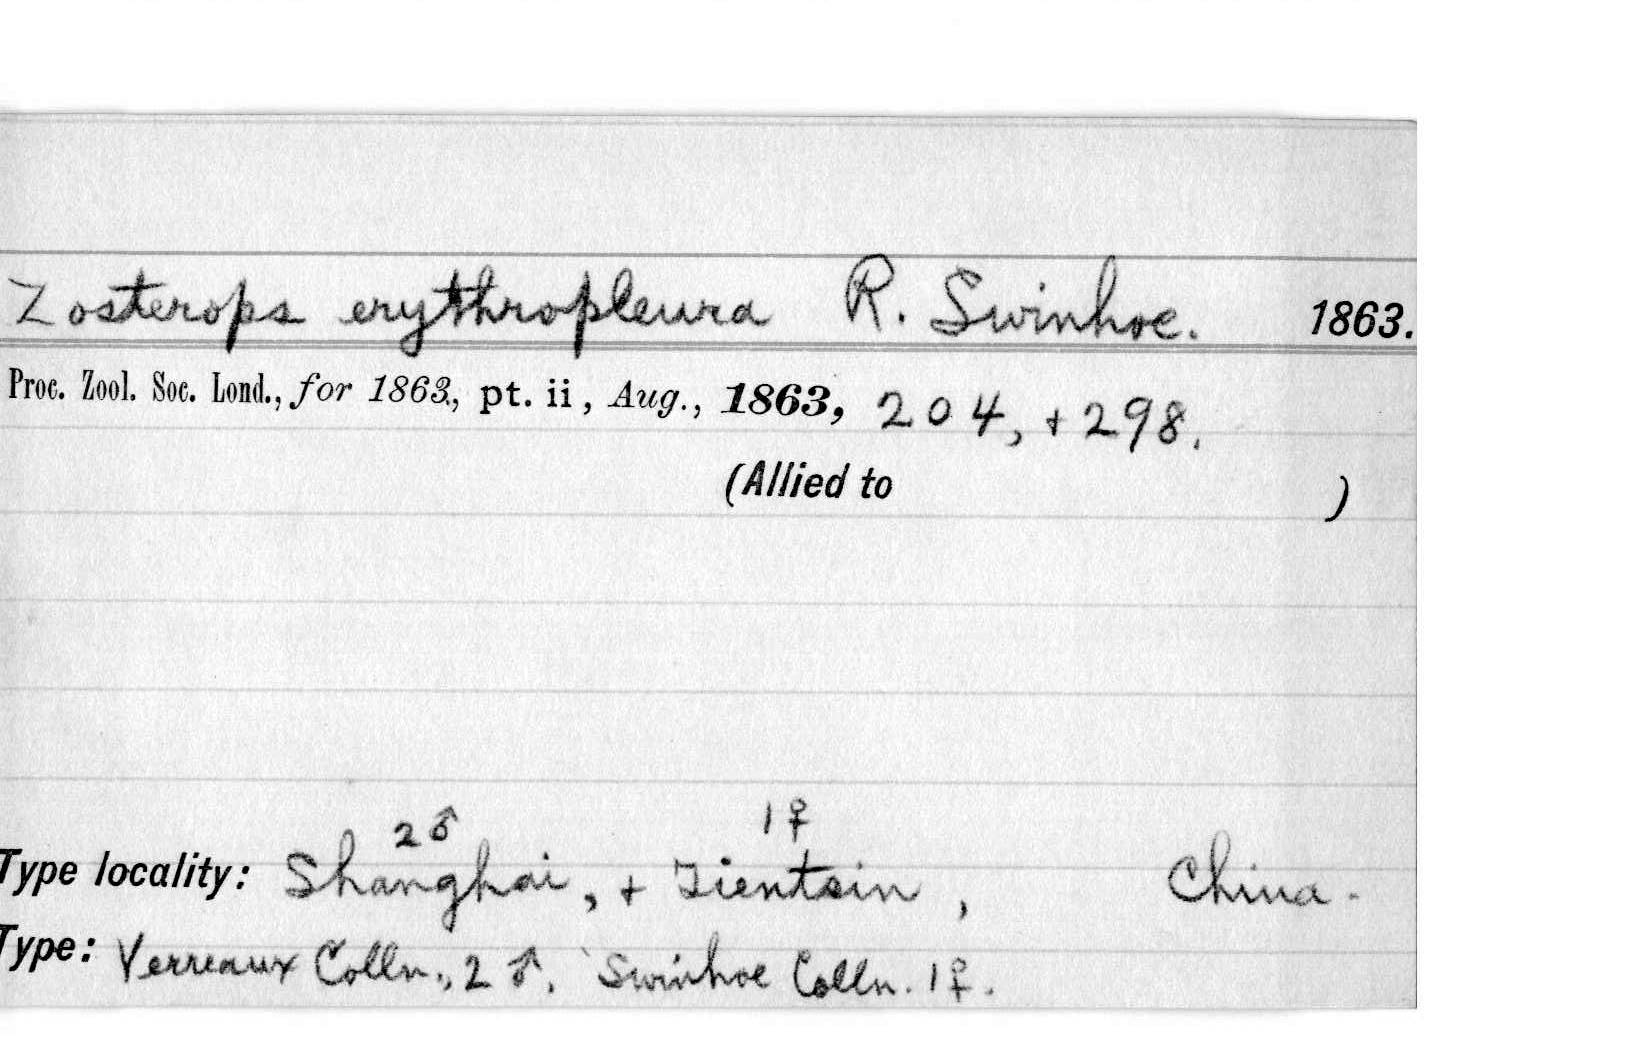 Zosterops erythropleura R. Swinhoe. 1863.
Proc. Zool. Soc. Lond., for 1863, pt. ii, Aug., 1863, 204, + 298.
(Allied to )
2♂ 1♀
Type locality: Shanghai, + Tientsin, China.
Type: Verreaux Colln., 2♂. Swinhoe Colln. 1♀.